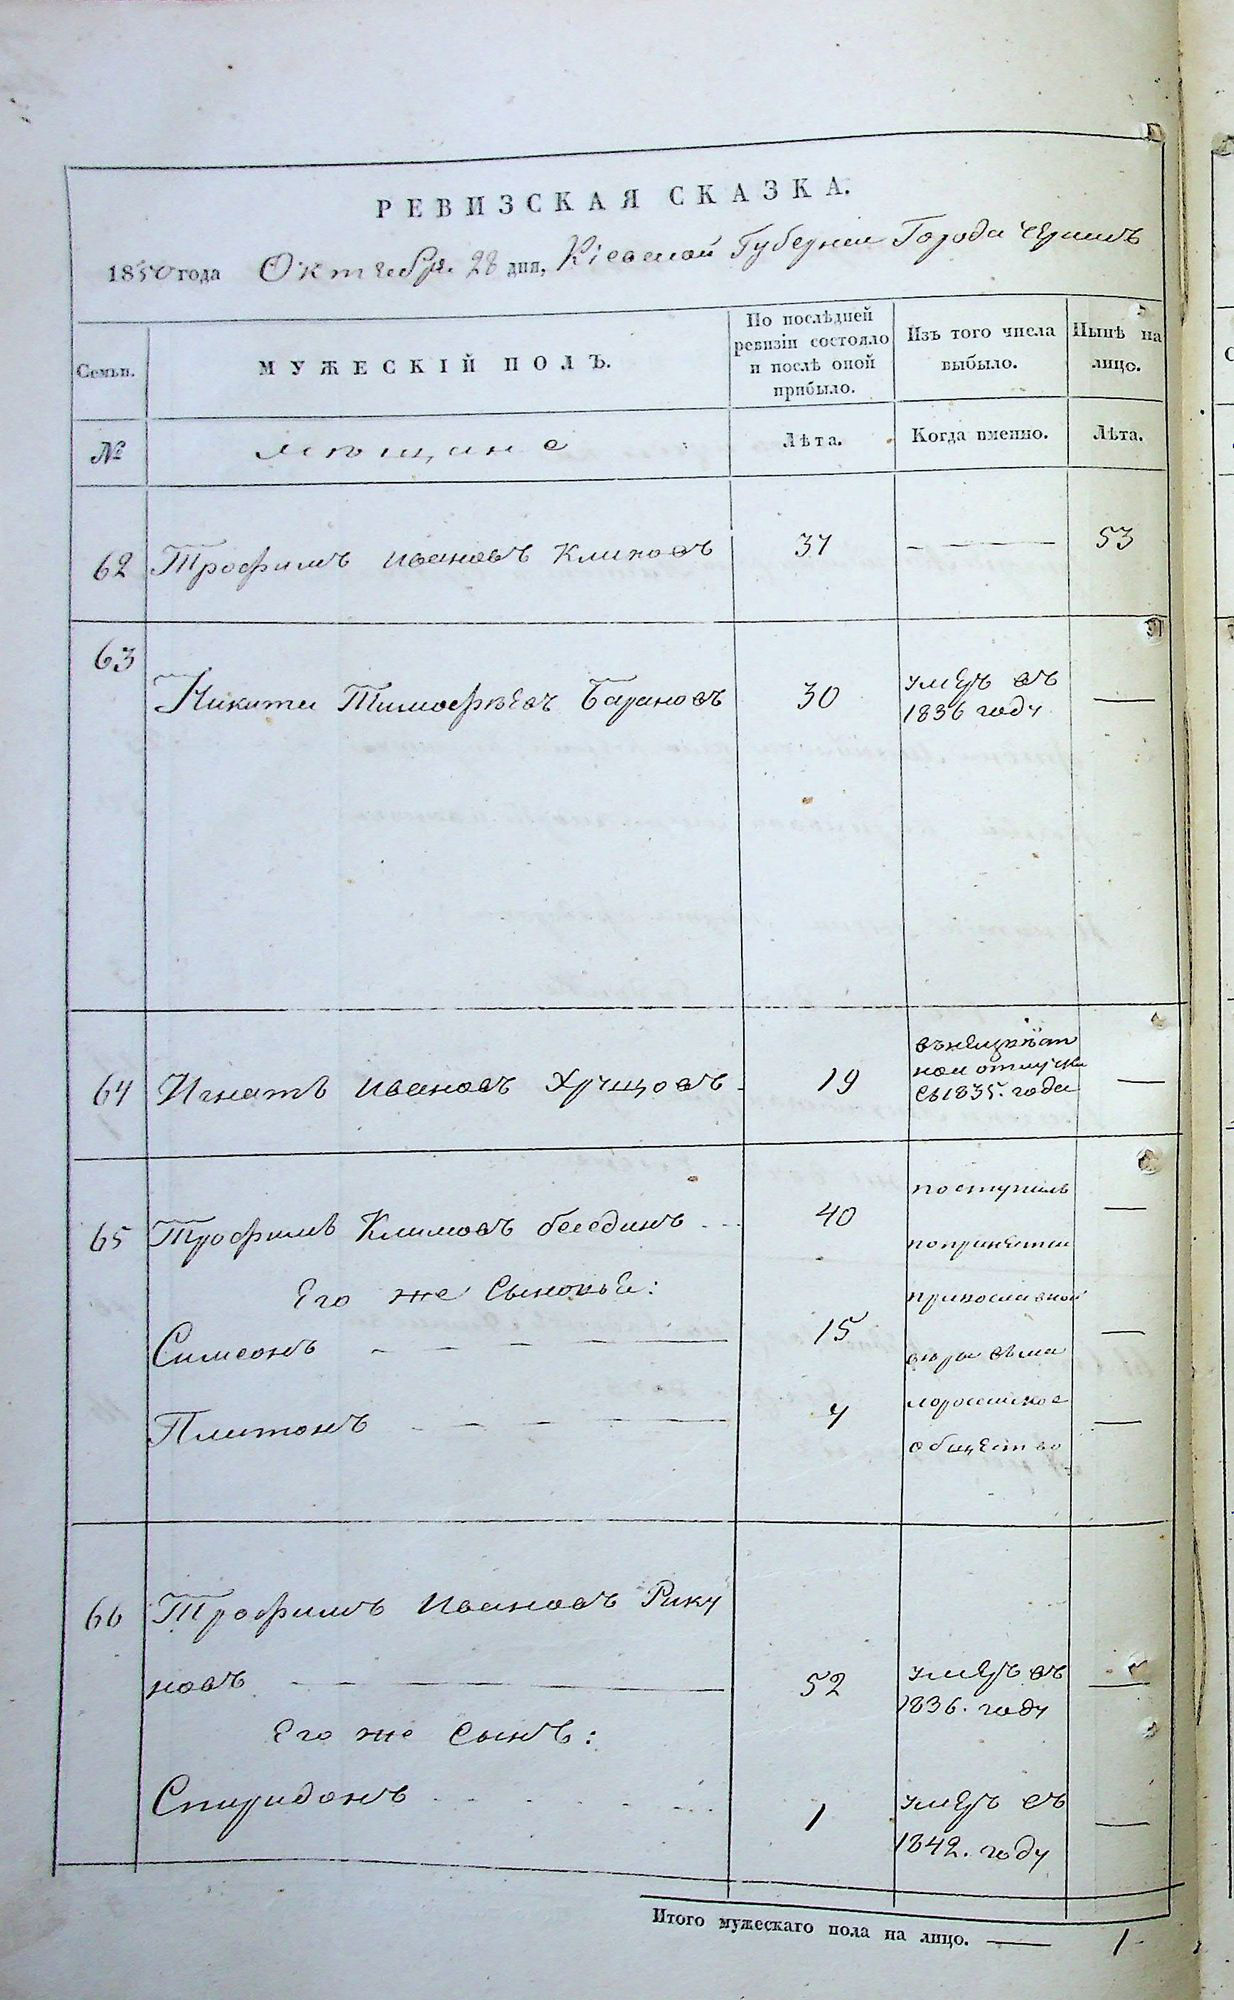 РЕВИЗСКАЯ СКАЗКА.
1850 года Октября 28 дня, Кіевской Губерніи Города
Семьи.
МУЖЕСКІЙ ПОЛЪ.
По послѣдней
ревизіи состояло
и послѣ оной
прибыло.
Изъ того числа
выбыло.
Нынѣ на
лицо.
№
мѣщане
Лѣта.
Когда именно.
Лѣта.
62 Трофимъ Ивановъ Климовъ 37 53
63
Никита Тимофѣевъ Барановъ 30
умеръ въ
1836 году
64 Игнатъ Ивановъ Хрущовъ 19
съ 1835. года
65 Трофимъ Климовъ 40
поступилъ
Его же Сыновья:
Симеонъ 15
Платонъ 7
общество
66 Трофимъ Ивановъ Рику
новъ 52
умеръ въ
1836. году
Его же Сынъ:
Спиридонъ 1
умеръ въ
1842. году
Итого мужескаго пола на лицо. 1